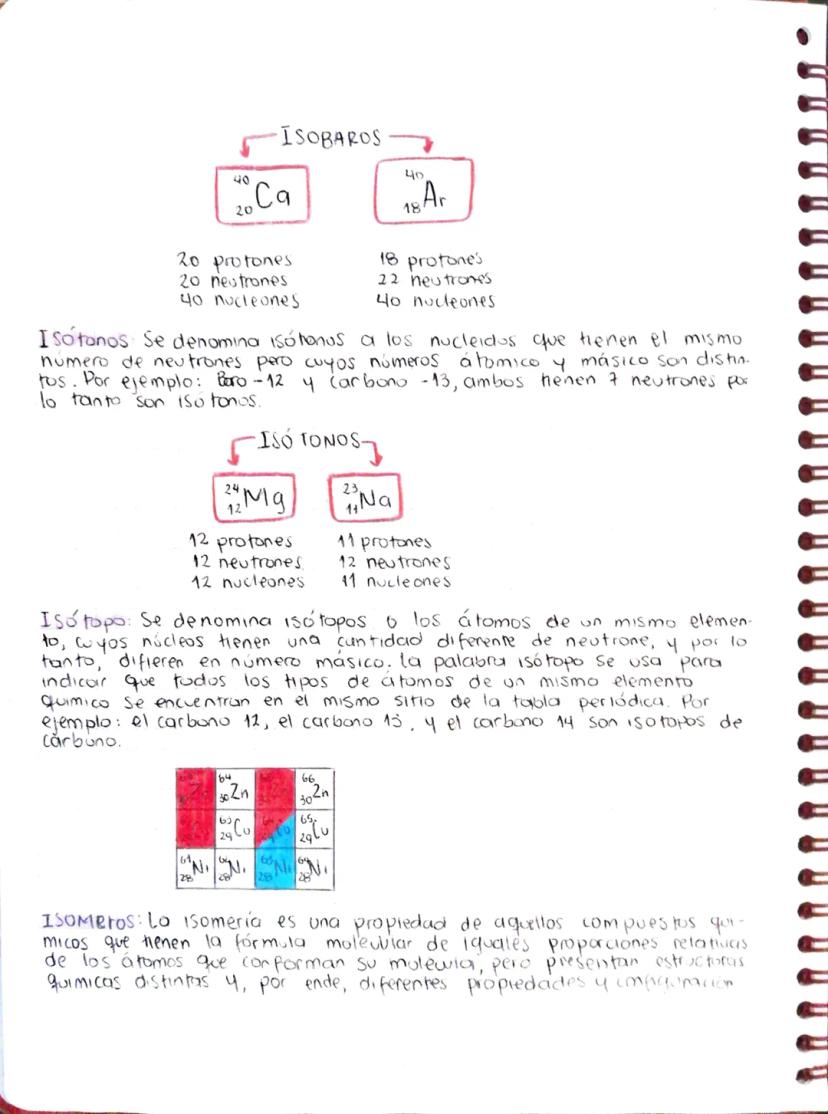 ISOBAROS
40 20 Ca 40 18 Ar
20 protones 18 protones
20 neutrones 22 neutrones
40 nucleones 40 nucleones
Isótonos Se denomina isótonos a los nucleidos que tienen el mismo
número de neutrones pero cuyos números átomico y másico son distin-
tos. Por ejemplo: Boro -12 y Carbono -13, ambos tienen 7 neutrones por
lo tanto son isótonos.
ISÓTONOS
24 12 Mg 23 11 Na
12 protones 11 protones
12 neutrones 12 neutrones
12 nucleones 11 nucleones
Isótopo: Se denomina isótopos a los átomos de un mismo elemen-
to, cuyos núcleos tienen una cantidad diferente de neutrone, y por lo
tanto, difieren en número másico. La palabra isótopo se usa para
indicar que todos los tipos de átomos de un mismo elemento
químico se encuentran en el mismo sitio de la tabla periódica. Por
ejemplo: el carbono 12, el carbono 13, y el carbono 14 son isotopos de
carbono.
64 30 Zn 66 30 Zn
63 29 Cu 65 29 Cu
61 28 Ni 28 Ni 28 Ni 28 Ni
ISOMEROS: La isomería es una propiedad de aquellos compuestos quí-
micos que tienen la fórmula molecular de iguales proporciones relativas
de los átomos que conforman su molecula, pero presentan estructuras
químicas distintas y, por ende, diferentes propiedades y configuración